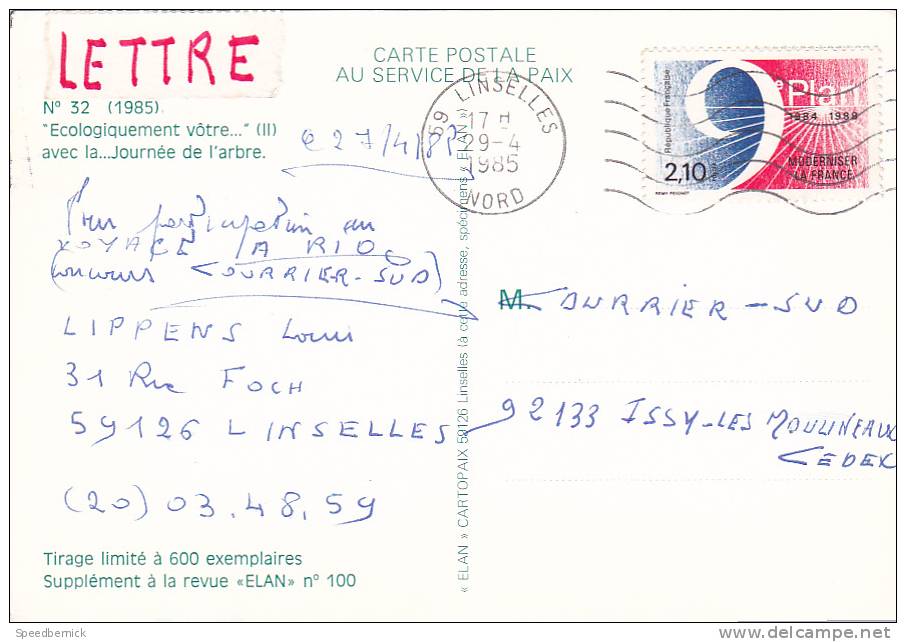 LETTRE
CARTE POSTALE
AU SERVICE DE LA PAIX
N° 32 (1985).
"Ecologiquement vôtre..." (II)
avec la...Journée de l'arbre.
27/4/85
59 LINSELLES
17 H
29-4
1985
NORD
République Française
9e Plan
1984 1988
MODERNISER
LA FRANCE
2,10
REMY PEIGNOT
Pour participation au
VOYAGE A RIO
(concours COURRIER-SUD)
LIPPENS Louis
31 Rue FOCH
59126 LINSELLES
(20) 03.48.59
M. COURRIER-SUD
92133 ISSY-LES MOULINEAUX
CEDEX
« ELAN » CARTOPAIX 59126 Linselles (à cette adresse, spécimens « ELAN »)
Tirage limité à 600 exemplaires
Supplément à la revue «ELAN» n° 100
Speedbernick
www.delcampe.net